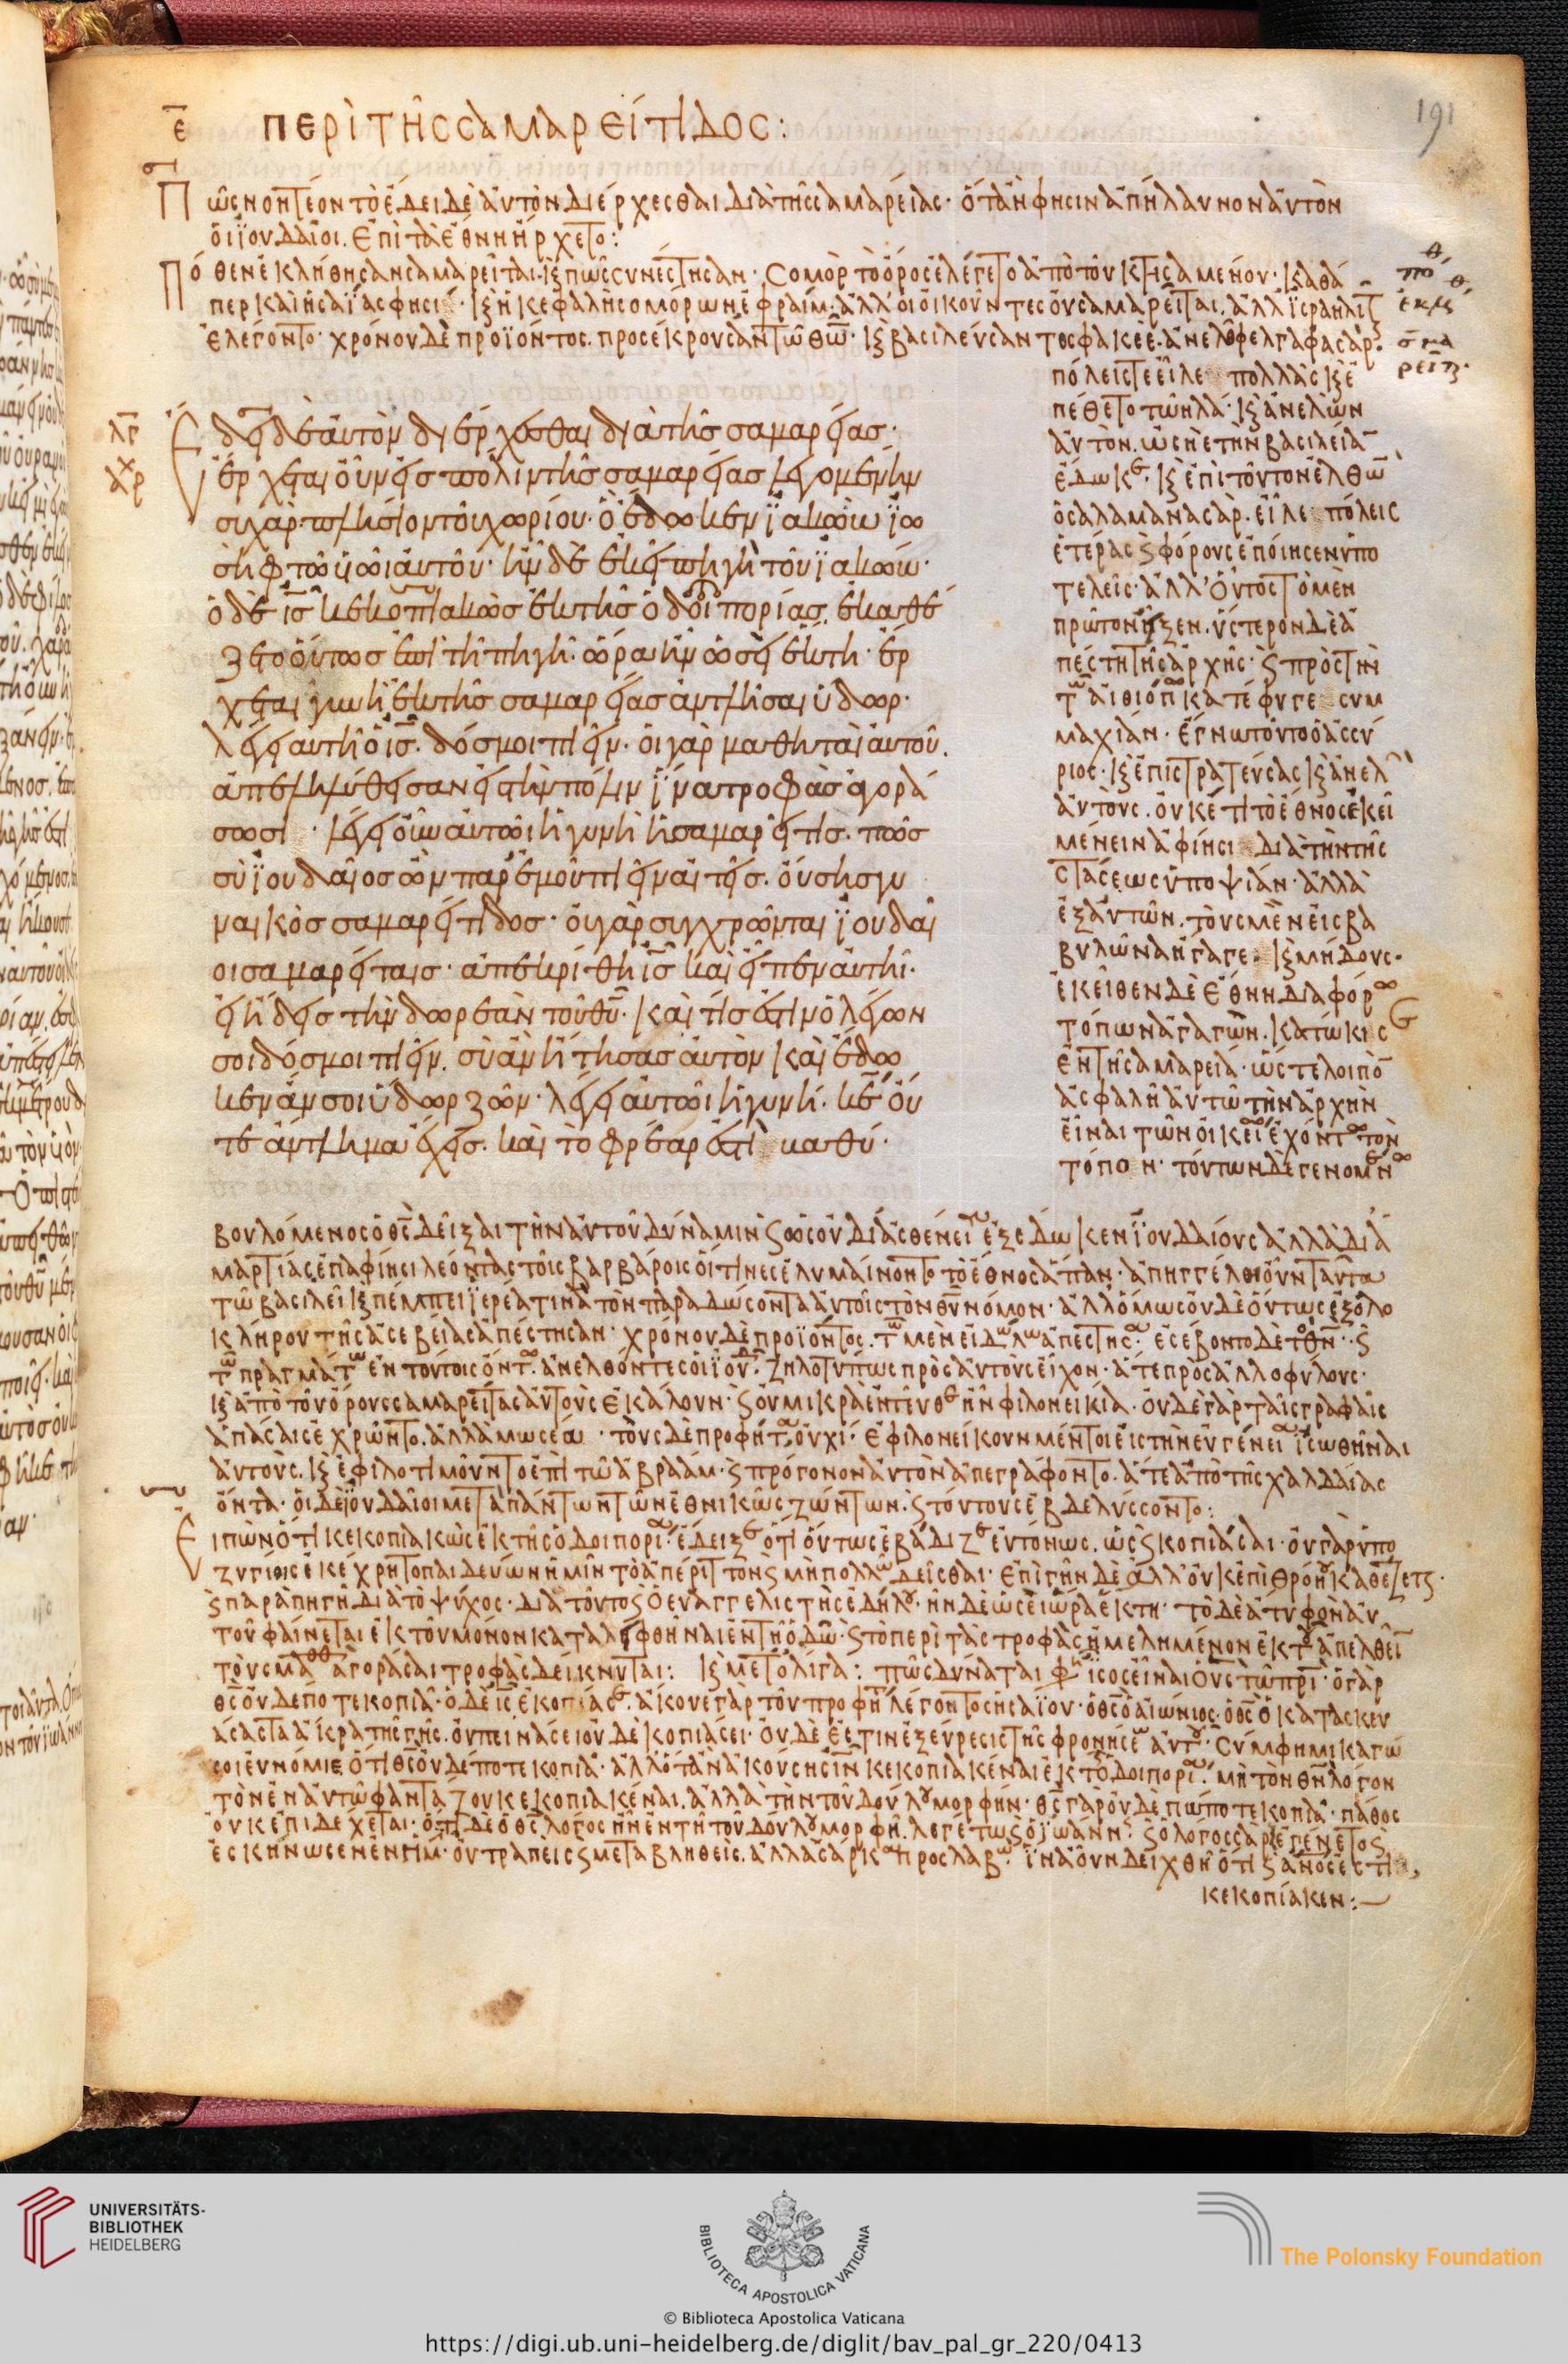 ε̅ ΠΕΡῚ ΤΗ͂Ϲ ϹΑΜΑΡΕΊΤΙΔΟϹ:
191
Πῶς νοητέον τὸ ἔδει δὲ αὐτὸν διέρχεσθαι διὰ τῆς σαμαρείας· ὅταν φησὶν ἀπήλαυνον αὐτὸν
οἱ ϊουδαῖοι. ἐπὶ τὰ ἔθνη ἤρχετο:
Πόθεν ἐκλήθησαν σαμαρεῖται. κ πῶς συνέστησαν· Σομὸρ τὸ ὄρος ἐλέγετο ἀπὸ τοῦ κτησαμένου· καθά
περ καὶ ἡσαΐας φησί· κ ἡ κεφαλὴ σομόρων ἐφραΐμ· ἀλλ' οἱ οἰκοῦντες οὐ σαμαρεῖται. ἀλλ ϊσραηλῖτ
ἐλέγοντο· χρόνου δὲ προϊόντος. προσέκρουσαν τῶ θω· κ βασιλεύσαντος φακεέ. ἀνελθ θελγαφασάρ.
πόθεν
ἐκλ
σαμα
ρεῖτ.
πόλεις τε εἷλε πολλὰς κ ἐ
πέθετο τῶ ηλά· κ ἀνελὼν
αὐτὸν. ὡσηὲ τὴν βασιλεία
ἔδωκε· κ ἐπὶ τοῦτον ἐλθω
ὁ σαλαμανασάρ. εἷλε πόλεις
ἑτέρας κ φόρους ἐποίησεν ὑπο
τελεῖς· ἀλλ' οὗτος τὸ μὲν
πρῶτον ἦξεν. ὕστερον δὲ ἀ
πέστη τῆς ἀρχῆς· κ πρὸς τὴν
τῶν αἰθιόπ κατέφυγε συμ
μαχίαν· ἔγνω τοῦτο ὁ ἀσσύ
ριος· κ ἐπιστρατεύσας κ ἀνελ
αὐτοὺς. οὐκέτι τὸ ἔθνος ἐκεῖ
μένειν ἀφίησι διὰ τὴν τῆς
στάσεως ὑποψίαν· ἀλλὰ
ἐξ αὐτῶν. τοὺς μὲν εἰς βα
βυλῶνα ἤγαγε. κ μήδους·
ἐκεῖθεν δὲ ἔθνη διαφόρ
τόπων ἀγαγὼν. κατώκισε
ἐν τῆ σαμαρεία· ὥστε λοιπὸ
ἀσφαλῆ αὐτῶ τὴν ἀρχὴν
εἶναι τῶν οἰκεί ἐχόντ τὸν
τόπον· τούτων δὲ γενομέν
λγ̅
χρ
Ἔδει δὲ αὐτὸν διέρχεσθαι διὰ τῆς σαμαρείας·
ἔρχεται οὖν εἰς πόλιν τῆς σαμαρείας λεγομένην
σιχάρ· πλησίον τοῦ χωρίου· ὃ ἔδωκεν ϊακὼβ ϊω
σὴφ τῶ υἱῶι αὐτοῦ· ἦν δὲ ἐκεῖ πηγὴ τοῦ ϊακώβ·
ὁ δὲ ι̅ς̅ κεκοπιακὼς ἐκ τῆς ὁδοιπορίας. ἐκαθέ
ζετο οὕτως ἐπὶ τῆ πηγῆ· ὥρα ἦν ὡσεὶ ἕκτη· ἔρ
χεται γυνὴ ἐκ τῆς σαμαρείας ἀντλῆσαι ὕδωρ·
λέγει αὐτῆ ὁ ι̅ς̅. δός μοι πιεῖν· οἱ γὰρ μαθηταὶ αὐτοῦ.
ἀπεληλύθεισαν εἰς τὴν πόλιν ϊνα τροφὰς ἀγορά
σωσι· λέγει οὖν αὐτῶι ἡ γυνὴ ἡ σαμαρεῖτις. πῶς
σὺ ϊουδαῖος ὢν παρ' ἐμοῦ πιεῖν αἰτεῖς. οὔσης γυ
ναικὸς σαμαρείτιδος· οὐ γὰρ συγχρῶνται ϊουδαῖ
οι σαμαρείταις· ἀπεκρίθη ι̅ς̅ καὶ εἶπεν αὐτῆ·
εἰ ἤδεις τὴν δωρεὰν τοῦ θ̅υ̅. καὶ τίς ἐστιν ὁ λέγων
σοι δός μοι πιεῖν. σὺ ἂν ἤτησας αὐτὸν καὶ ἔδω
κεν ἄν σοι ὕδωρ ζῶν· λέγει αὐτῶι ἡ γυνή. κ̅ε̅ οὔ
τε ἄντλημα ἔχεις. καὶ τὸ φρέαρ ἐστὶ βαθύ·
βουλόμενος ὁ θ̅ς̅ δεῖξαι τὴν αὐτοῦ δύναμιν κ ὡς οὐ δι' ἀσθένει ἐξέδωκεν ϊουδαίους ἀλλὰ δι' ἁ
μαρτίας ἐπαφίησι λέοντας τοῖς βαρβάροις οἵτινες ἐλυμαίνοντο τὸ ἔθνος ἅπαν· ἀπηγγέλθη οὖν ταῦτα
τῶ βασιλεῖ κ πέμπει ϊερέα τινὰ τὸν παραδώσοντα αὐτοῖς τὸν θ̅υ̅ νόμον· ἀλλ' ὅμως οὐδὲ οὕτως ἐξ ὁλο
κλήρου τῆς ἀσεβείας ἀπέστησαν· χρόνου δὲ προϊόντος. τῶν μὲν εἰδώλω ἀπέστησ ἐσέβοντο δὲ τὸν θ̅ν̅· κ
τῶν πραγμάτ ἐν τούτοις ὄντ ἀνελθόντες οἱ ϊου ζηλοτύπως πρὸς αὐτοὺς εἶχον· ἅτε πρὸς ἀλλοφύλους·
κ ἀπὸ τοῦ ὄρους σαμαρείτας αὐτοὺς ἐκάλουν· κ οὐ μικρὰ ἐντεῦθεν ἦν φιλονεικία· οὐδὲ γὰρ ταῖς γραφαῖς
ἁπάσαις ἐχρῶντο. ἀλλὰ μωσέω· τοὺς δὲ προφήτ οὐχί· ἐφιλονείκουν μέντοι εἰς τὴν εὐγένει ϊσωθῆναι
αὐτοὺς. κ ἐφιλοτιμοῦντο ἐπὶ τῶ ἀβραάμ· κ πρόγονον αὐτὸν ἀπεγράφοντο. ἅτε ἀπὸ τῆς χαλδαίας
ὄντα· οἱ δὲ ϊουδαῖοι μετὰ πάντων τῶν ἐθνικῶς ζώντων. κ τούτους ἐβδελύσσοντο:
Εἰπὼν ὅτι κεκοπιακὼς ἐκ τῆς ὁδοιπορί ἔδειξε ὅτι οὕτως ἐβάδιζε εὐτόνως. ὡς κ κοπιάσαι· οὐ γὰρ ὑπο
ζυγίοις ἐκέχρητο παιδεύων ἡμῖν τὸ ἀπέριττον κ μὴ πολλῶ δεῖσθαι· ἐπὶ γῆν δὲ ἀλλ' οὐκ ἐπὶ θρόνου καθέζετ·
κ παρὰ πηγὴν διὰ τὸ ψύχος· διὰ τοῦτο κ ὁ εὐαγγελιστὴς ἐδήλου· ἦν δὲ ὡσεὶ ὥρα ἕκτη· τὸ δὲ ἄτυφον αὐ
τοῦ φαίνεται ἐκ τοῦ μόνον καταλειφθῆναι ἐν τῆ ὁδῶ· κ τὸ περὶ τὰς τροφὰς ἠμελημένον ἐκ τοῦ ἀπελθεῖ
τοὺς μαθ ἀγοράσαι τροφὰς δείκνυται: κ μετ' ὀλίγα: πῶς δύναται φ ϊσος εἶναι ὁ υ̅ς̅ τῶ π̅ρ̅ι̅· ὁ γὰρ
θ̅ς̅ οὐδέποτε κοπιᾶ· ὁ δὲ ι̅ς̅ ἐκοπίασε. ἄκουε γὰρ τοῦ προφή λέγοντος ἡσαΐου· ὁ θ̅ς̅ ὁ αἰώνιος· ὁ θ̅ς̅ ὁ κατασκευ
άσας τὰ ἄκρα τῆς γῆς. οὐ πεινάσει οὐδὲ κοπιάσει· οὐδὲ ἔστιν ἐξεύρεσις τῆς φρονήσεω αὐτοῦ· Σύμφημι κἀγώ
σοι εὐνόμιε ὅτι θ̅ς̅ οὐδέποτε κοπιᾶ· ἀλλ' ὅταν ἀκούσης ι̅ν̅ κεκοπιακέναι ἐκ τ ὁδοιπορί· μὴ τὸν θ̅ν̅ λόγον
τὸν ἐν αὐτῶ φαντάζου κεκοπιακέναι. ἀλλὰ τὴν τοῦ δούλου μορφὴν· θ̅ς̅ γὰρ οὐδὲ πώποτε κοπιᾶ· πάθος
οὐκ ἐπιδέχεται· ὅτι δὲ ὁ θ̅ς̅ λόγος ἦν ἐν τῆ τοῦ δούλου μορφῆ. λεγέτω σοι ὁ ϊωάνν κ ὁ λόγος σὰρξ ἐγένετο κ
ἐσκήνωσεν ἐν ἡμ· οὐ τραπεὶς κ μεταβληθεὶς. ἀλλὰ σάρκα προσλαβω· ϊνα οὖν δειχθῆ ὅτι κ ἄν̅ο̅ς̅ ἐστι,
κεκοπίακεν:
UNIVERSITÄTS-
BIBLIOTHEK
HEIDELBERG
BIBLIOTECA APOSTOLICA VATICANA
The Polonsky Foundation
© Biblioteca Apostolica Vaticana
https://digi.ub.uni-heidelberg.de/diglit/bav_pal_gr_220/0413